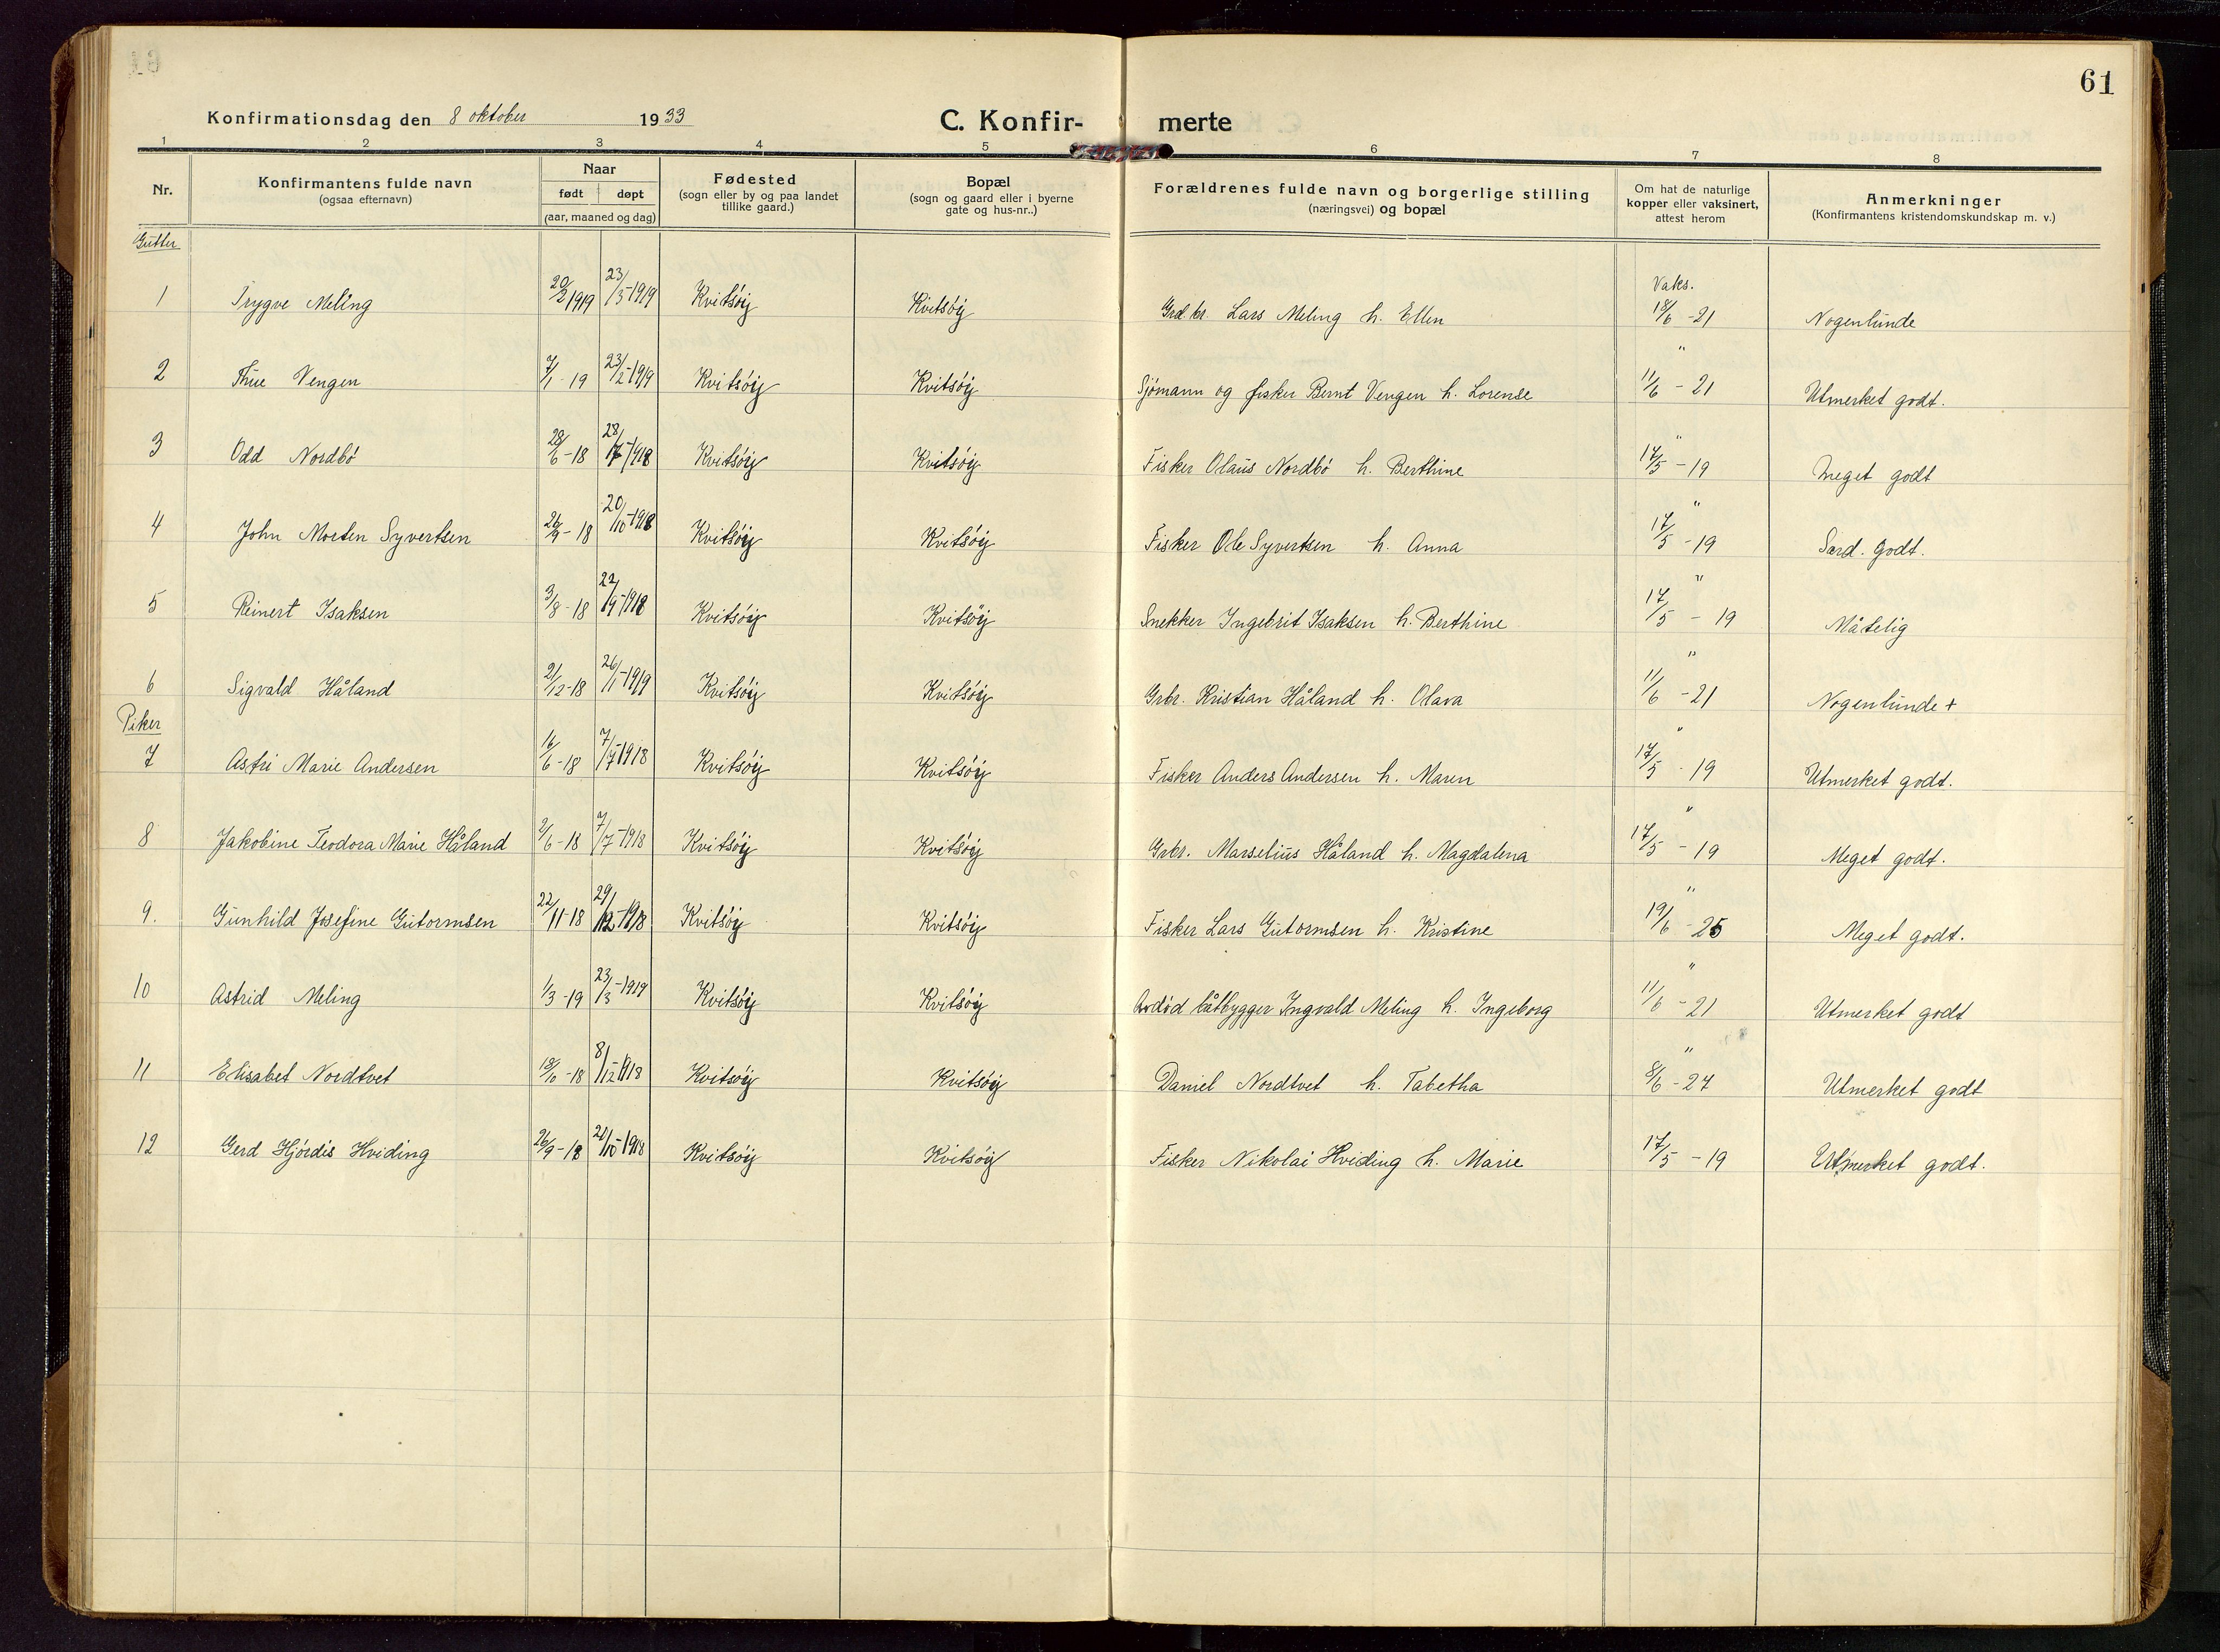 61
Konfirmationsdag den 8 oktober 1933
C. Konfir- merte
1 2 3 4 5 6 7 8
Nr.
Konfirmantens fulde navn
(ogsaa efternavn)
Naar
født døpt
(aar, maaned og dag)
Fødested
(sogn eller by og paa landet
tillike gaard.)
Bopæl
(sogn og gaard eller i byerne
gate og hus-nr..)
Forældrenes fulde navn og borgerlige stilling
(næringsvei) og bopæl
Om hat de naturlige
kopper eller vaksinert,
attest herom
Anmerkninger
(Konfirmantens kristendomskundskap m. v.)
Gutter
1 Trygve Meling 20/2 1919 23/3-1919 Kvitsöÿ Kvitsöÿ Grd.br. Lars Meling h. Ellen Vaks. 18/6 -21 Nogenlunde
2 Thue Vengen 7/1-19 23/2-1919 Kvitsöÿ Kvitsöÿ Sjömann og fisker Bernt Vengen h. Lorense " 11/6 - 21 Utmerket godt.
3 Odd Nordbö 28/6-18 28/7-1918 Kvitsöÿ Kvitsöÿ Fisker Olaus Nordbö h. Berthine " 17/5 - 19 Meget godt
4 John Morten Syvertsen 26/9-18 20/10-1918 Kvitsöÿ Kvitsöÿ Fisker Ole Syvertsen h. Anna " 17/5 - 19 Særd. godt.
5 Reinert Isaksen 3/8-18 22/9-1918 Kvitsöÿ Kvitsöÿ Snekker Ingebrit Isaksen h. Berthine " 17/5 - 19 Måtelig
6 Sigvald Håland 2/12-18 26/1-1919 Kvitsöÿ Kvitsöÿ Grbr. Kristian Håland h. Olava " 11/6 - 21 Nogenlunde +
Piker
7 Astri Marie Andersen 16/6-18 7/7-1918 Kvitsöÿ Kvitsöÿ Fisker Anders Andersen h. Maren " 17/5 - 19 Utmerket godt.
8 Jakobine Teodora Marie Håland 2/6-18 7/7-1918 Kvitsöÿ Kvitsöÿ Grbr. Marselius Håland h. Magdalena " 17/5 - 19 Meget godt.
9. Gunhild Josefine Gutormsen 22/11-18 29/12-1918 Kvitsöÿ Kvitsöÿ Fisker Lars Gutormsen h. Kristine " 19/6 - 25 Meget godt.
10 Astrid Meling 1/3-19 23/3-1919 Kvitsöÿ Kvitsöÿ Avdöd båtbygger Ingvald Meling h. Ingeborg " 11/6 - 21 Utmerket godt
11 Elisabet Nordtvet 18/10-18 8/12-1918 Kvitsöÿ Kvitsöÿ Daniel Nordtvet h. Tabetha " 8/6 - 24 Utmerket godt
12 Gerd Hjördis Hviding 26/9-18 /10-1918 Kvitsöÿ Kvitsöÿ Fisker Nikolai Hviding h. Marie 17/5 - 19 Utmerket godt.